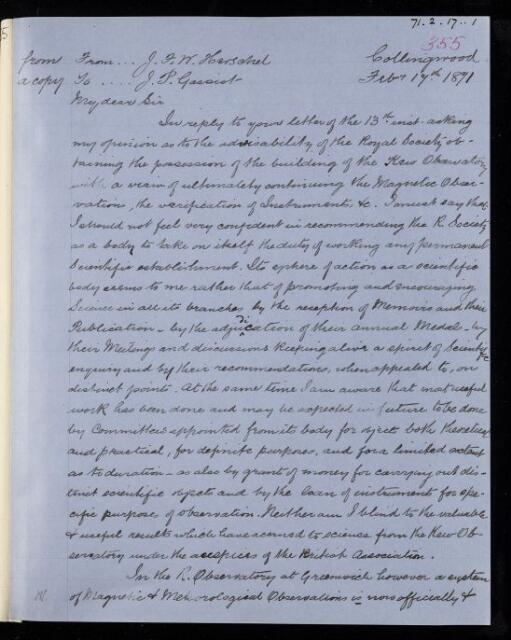 71. 2. 17.. 1
355
from From.... J. F. W. Herschel Collingwood
a copy To .... J. P. Gassiot Feby 17th 1871
My dear Sir
In reply to your letter of the 13th inst. asking
my opinion as to the advisability of the Royal Society ob-
taining the possession of the building of the Kew Observatory
with a view of ultimately continuing the Magnetic Obser-
vations, the verification of Instruments, &c. I must say that
I should not feel very confident in recommending the R. Society
as a body to take on itself the duty of working any permanent
Scientific establishment. Its sphere of action as a scientific
body seems to me rather that of promoting and encouraging
Science in all its branches by the reception of Memoirs and their
Publication - by the adjudication of their annual Medals - by
their Meetings and discussions keeping alive a spirit of Scientific
enquiry and by their recommendations, when appealed to, on
distinct points. At the same time I am aware that most useful
work has been done and may be expected in future to be done
by Committees appointed from its body for objects both theoretical
and practical, for definite purposes, and for a limited extent
as to duration - as also by grant of money for carrying out dis-
tinct scientific objects and by the loan of instruments for spe-
cific purpose of observation. Neither am I blind to the valuable
& useful results which have accrued to science from the Kew Ob-
servatory under the auspices of the British Association.
In the R. Observatory at Greenwich however a system
of Magnetic & Meteorological Observations is now officially &